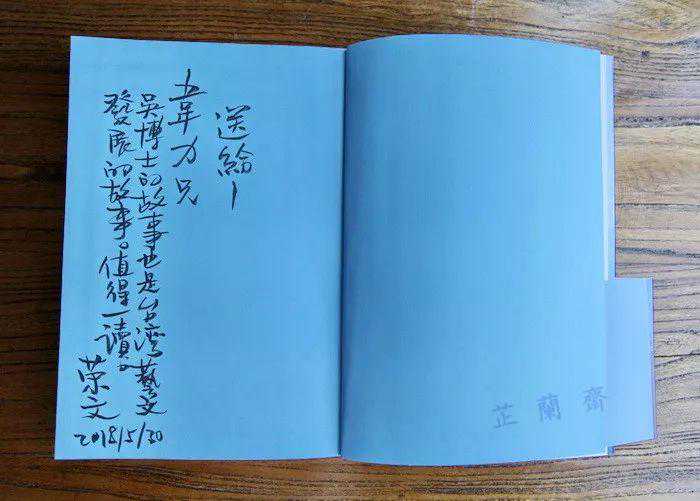 送給—
韋力兄
吳博士的故事也是台灣藝文
發展的故事。值得一讀。
荣文
2018/5/30
芷蘭齋